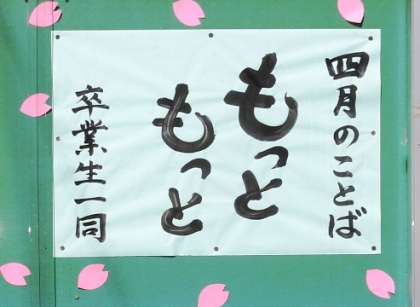 四月のことば
もっと
もっと
卒業生一同